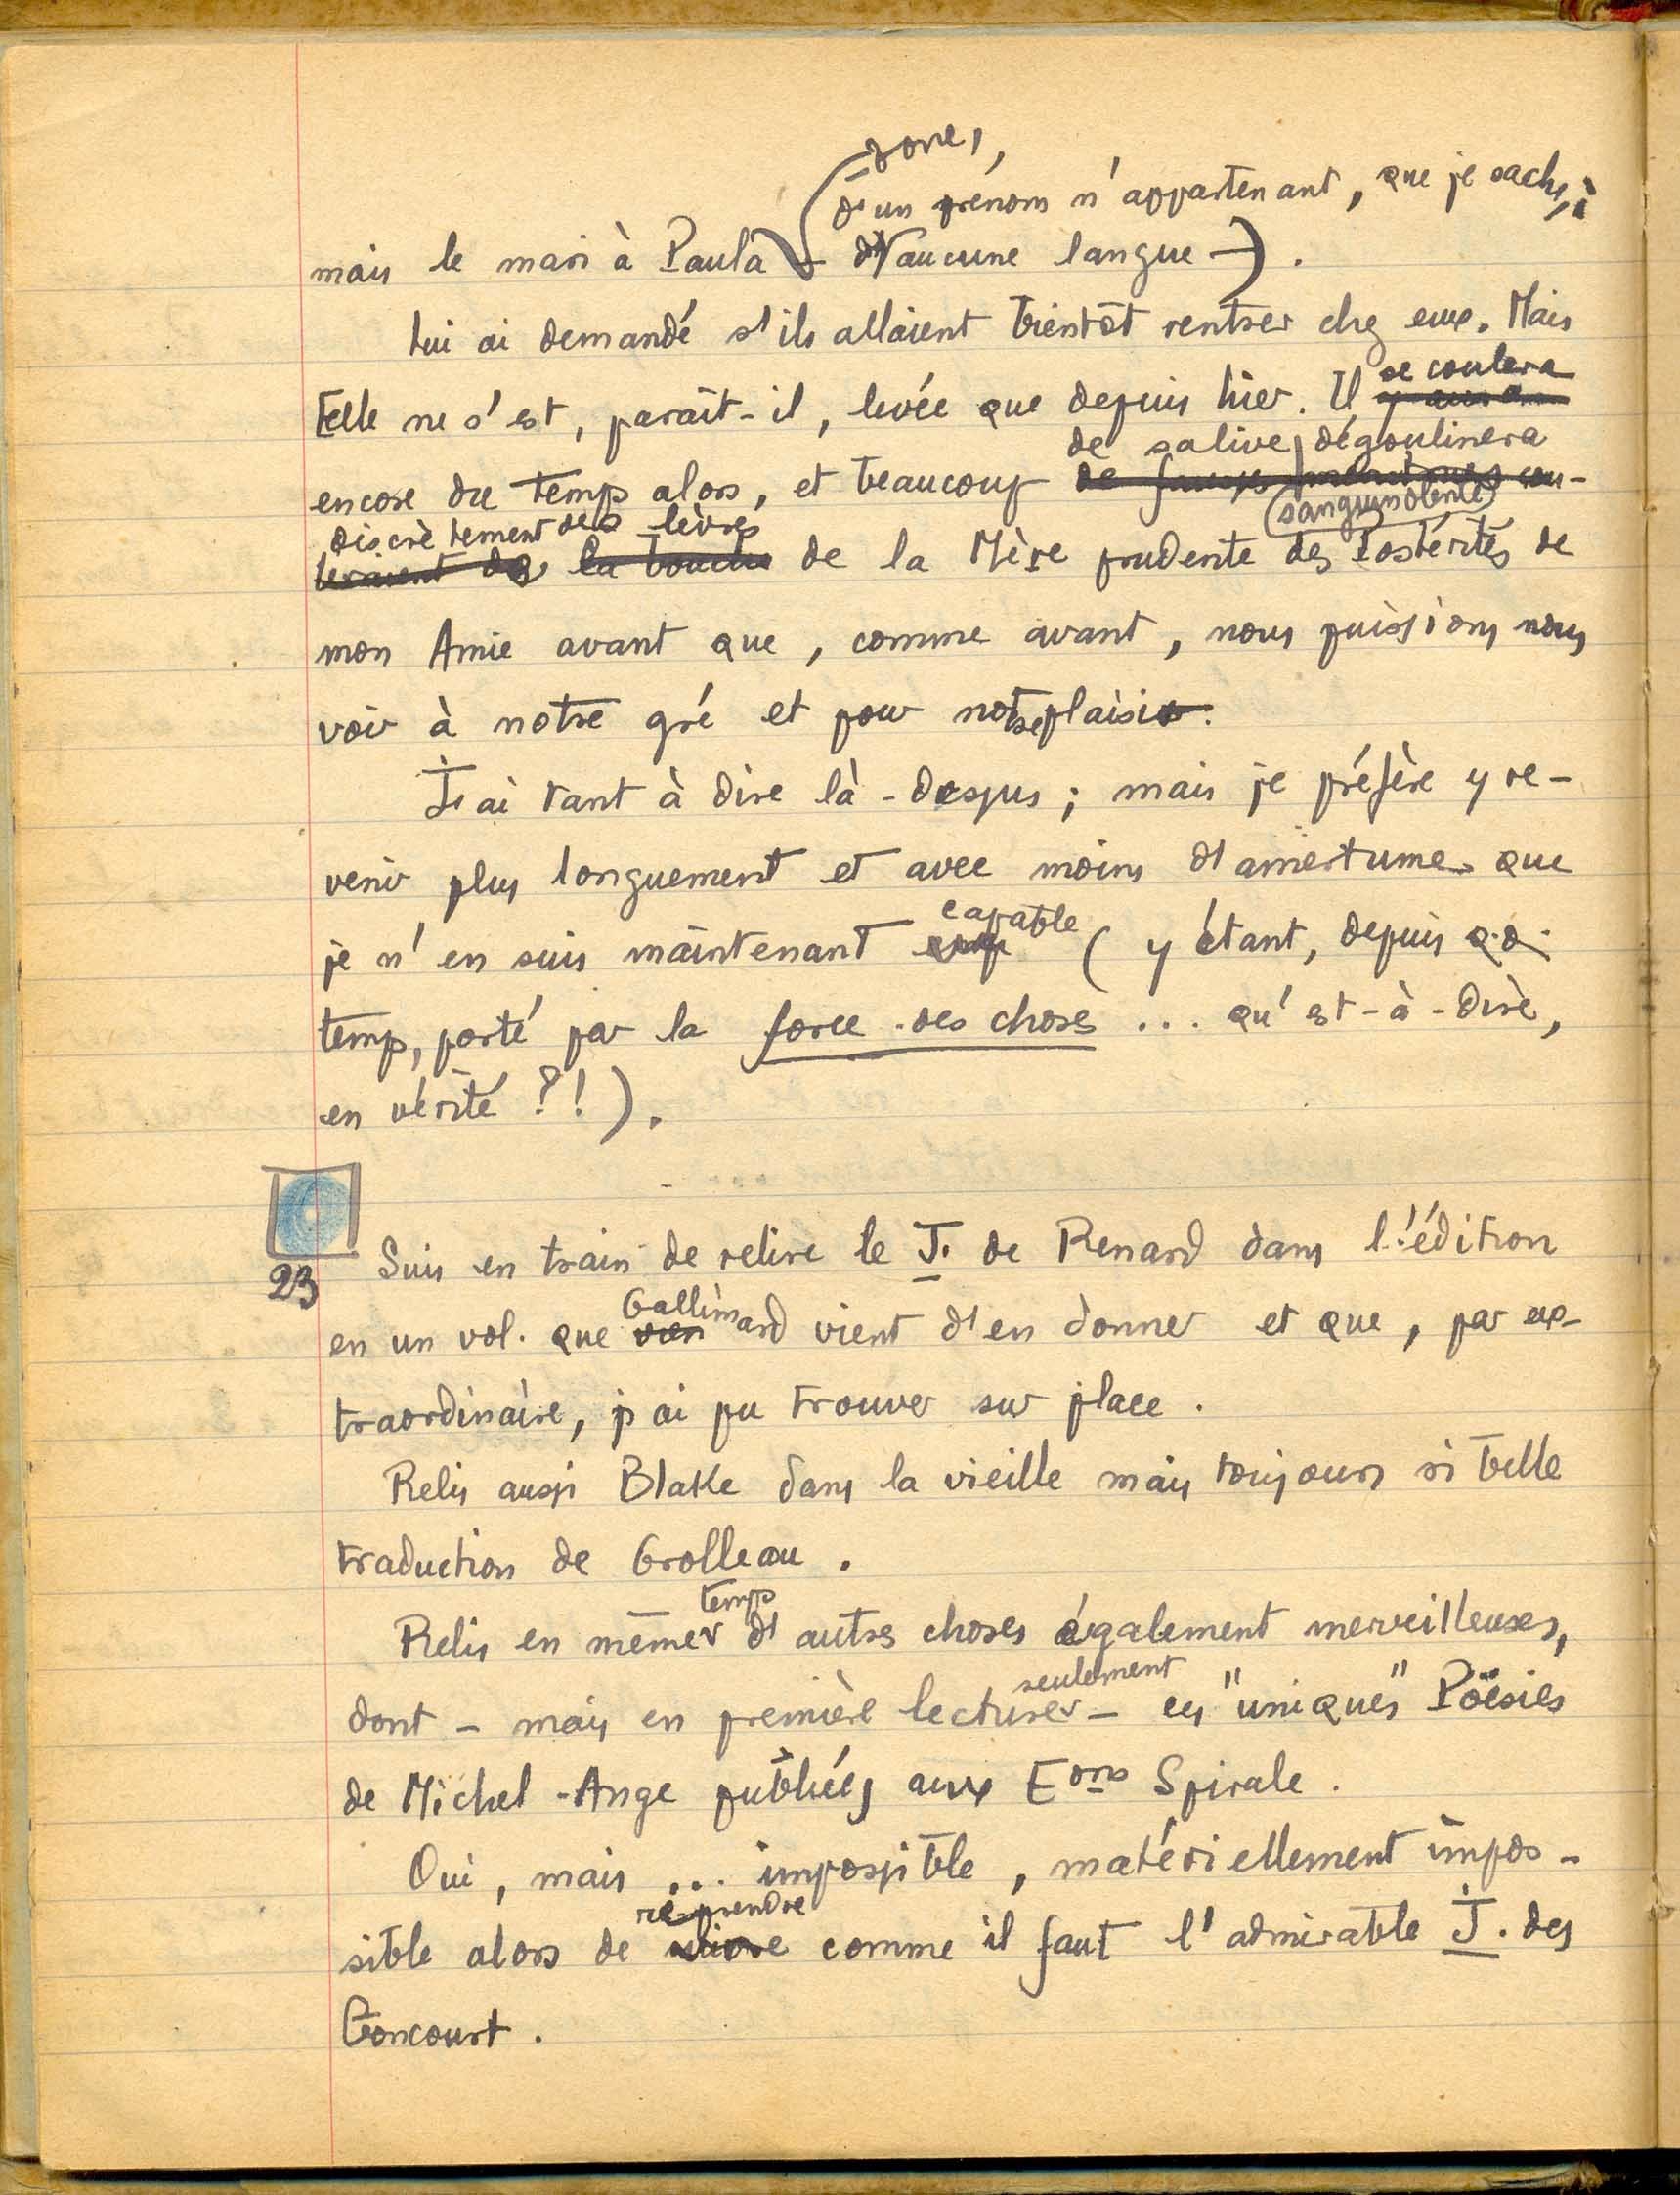 zone,
d'un prénom n'appartenant, que je sache, à
mais le mari à Paula – aucune langue –).
Lui ai demandé s'ils allaient bientôt rentrer chez eux. Mais
se coulera
Elle ne s'est, paraît-il, levée que depuis hier. Il y aura
de salive, dégoulinera
encore du temps alors, et beaucoup de cou-
discrètement des lèvres (sanguinolentes)
leraient de la bouche de la Mère prudente des Postérités de
mon Amie avant que, comme avant, nous puissions nous
voir à notre gré et pour notre plaisir.
J'ai tant à dire là-dessus ; mais je préfère y re-
venir plus longuement et avec moins d'amertume que
capable
je n'en suis maintenant (y étant, depuis q.q.
temps, porté par la force des choses ... qu'est-à-dire,
en vérité ?!).
23
Suis en train de relire le J. de Renard dans l'édition
Gallimard
en un vol. que vien vient d'en donner et que, par ex-
traordinaire, j'ai pu trouver sur place.
Relis aussi Blake dans la vieille mais toujours si belle
traduction de Grolleau.
temps
Relis en même d'autres choses également merveilleuses,
seulement
dont – mais en première lecture – ces "uniques" Poësies
de Michel-Ange publiées aux Eons Spirale.
Oui, mais ... impossible, matériellement impos-
reprendre
sible alors de suivre comme il faut l'admirable J. des
Goncourt.